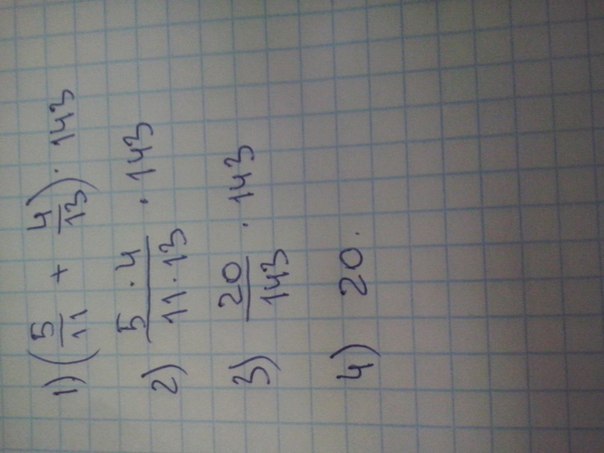 1) (5/11 + 4/13) · 143
2) 5 · 4/11 · 13 · 143
3) 20/143 · 143
4) 20.